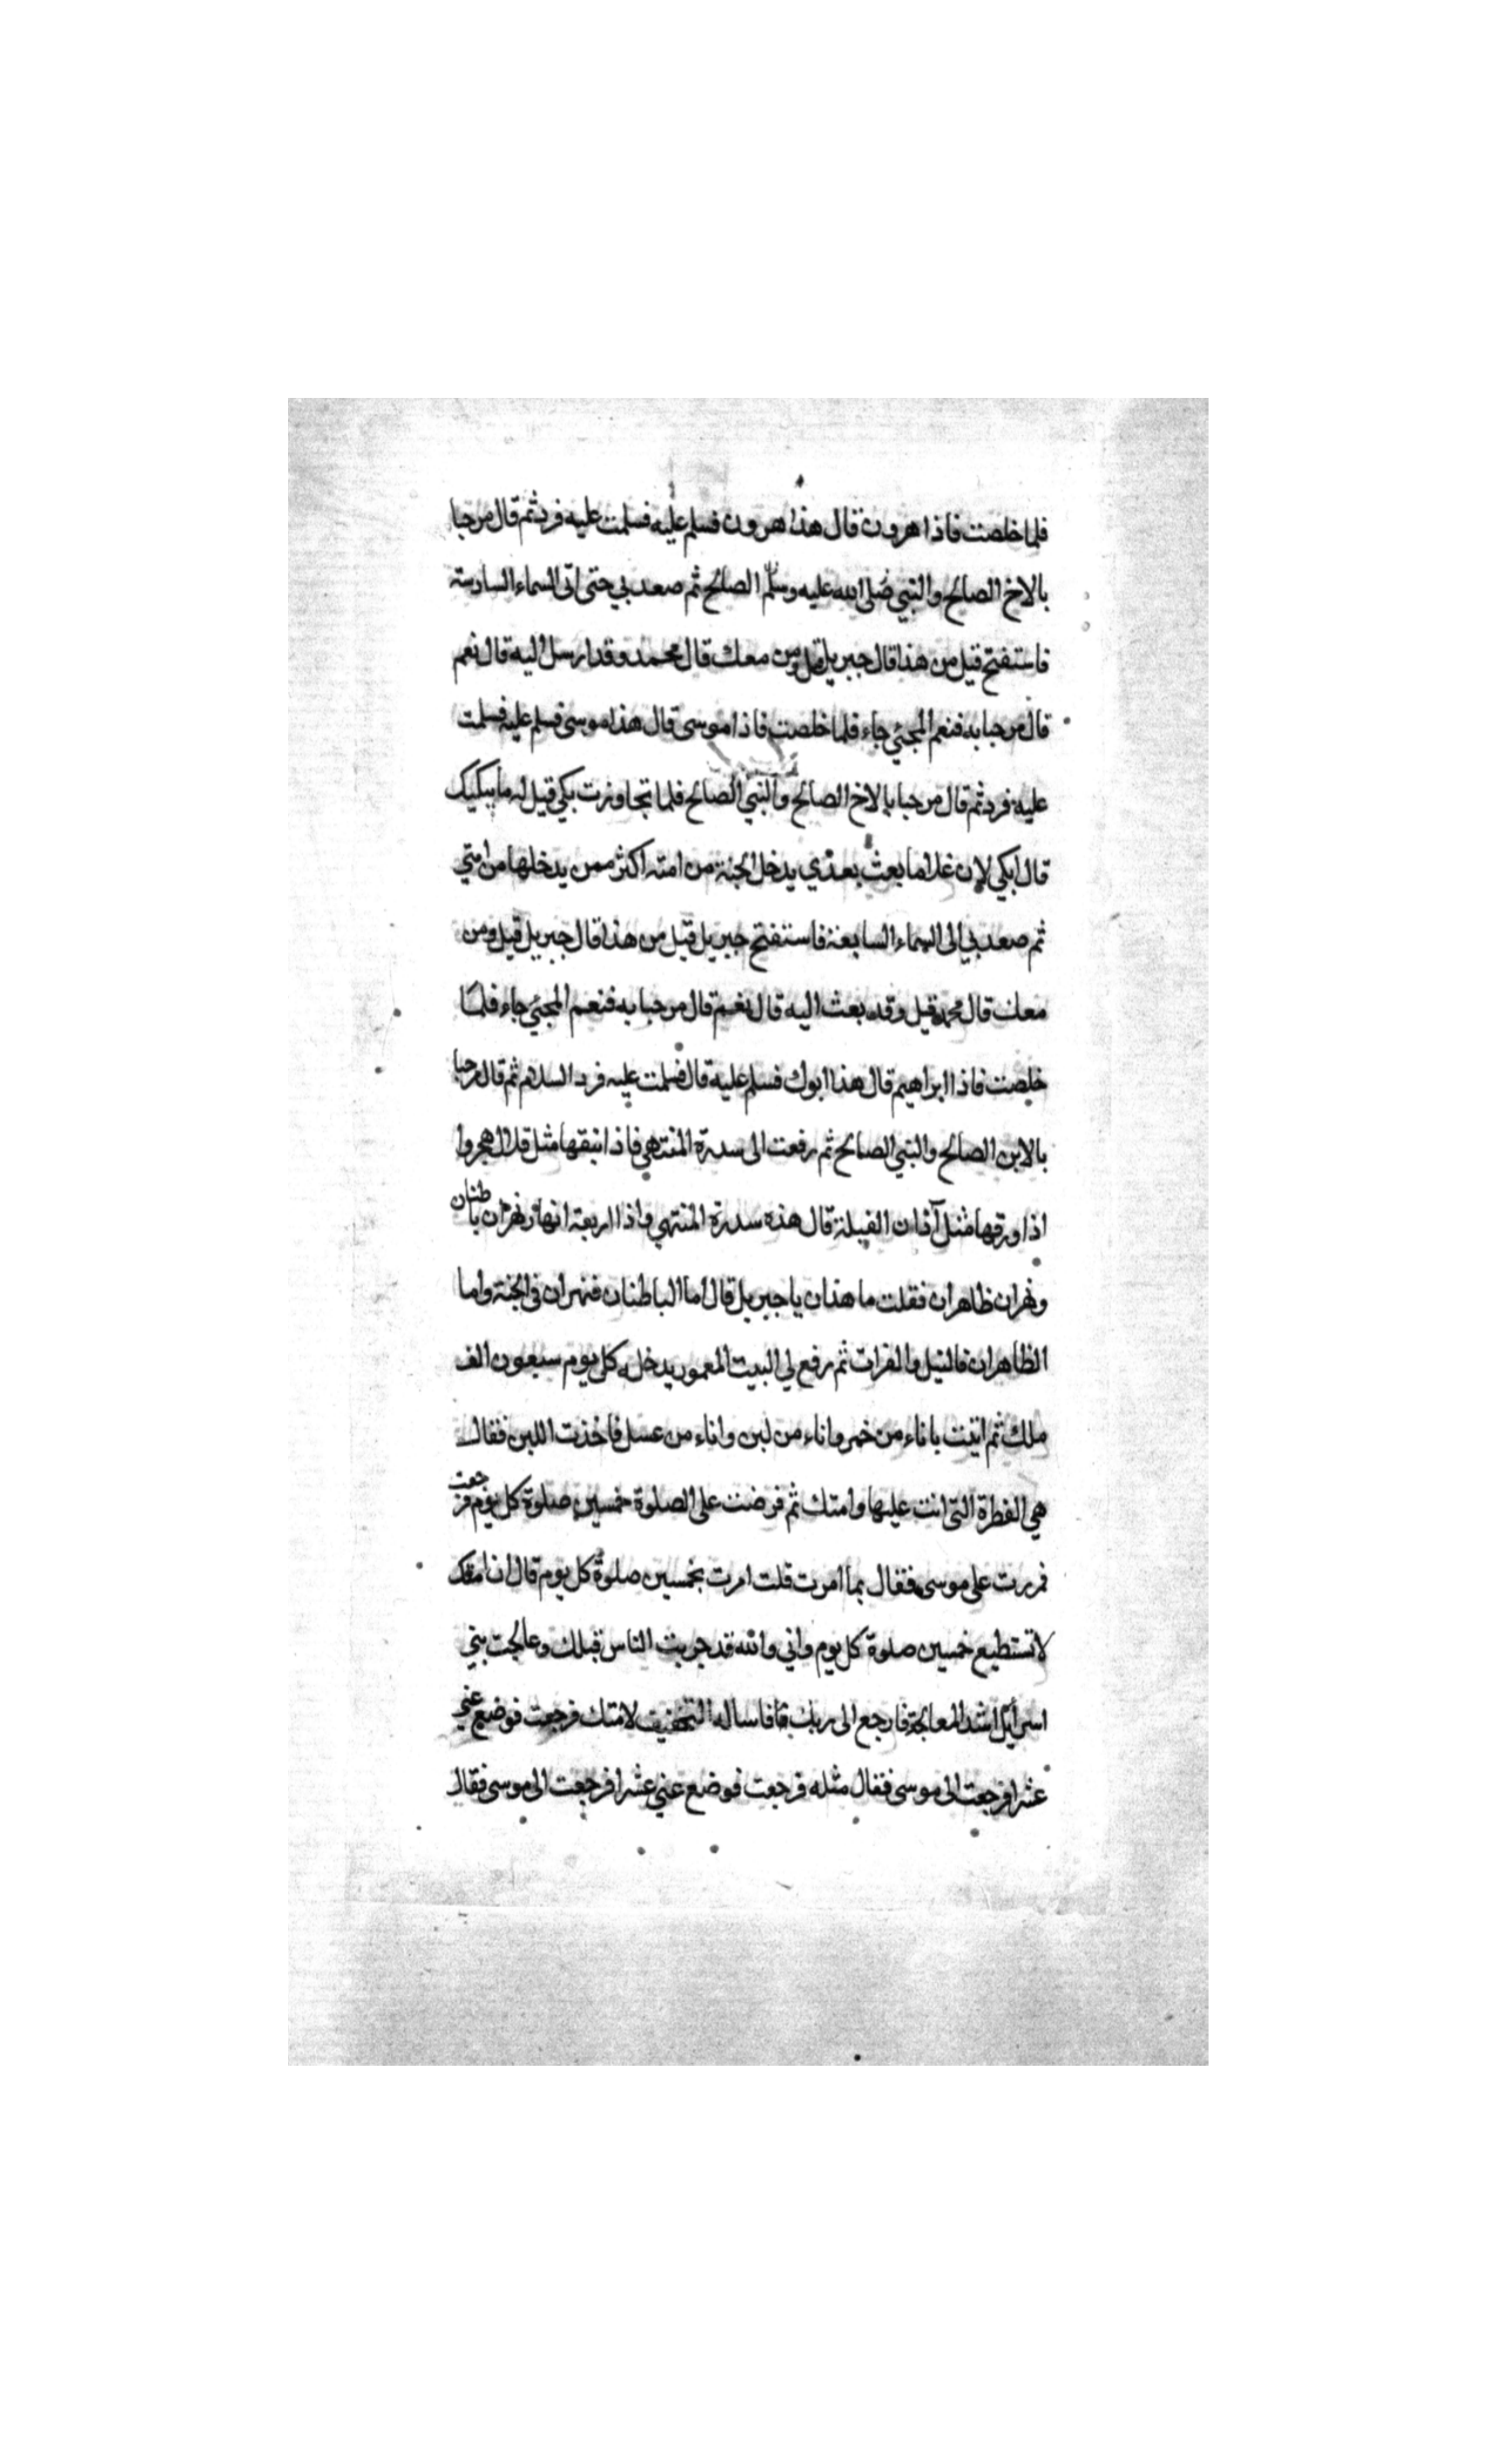 فلما خلصت فاذا هرون قال هذا هرون فسلم عليه فسلمت عليه فرد ثم قال مرحبا
بالاخ الصالح والنبي صلى الله عليه وسلم الصالح ثم صعد بي حتى اتى السماء السادسة
فاستفتح قيل من هذا قال جبريل قيل ومن معك قال محمد وقد ارسل اليه قال نعم
قال مرحبا به فنعم المجئي جاء فلما خلصت فاذا موسى قال هذا موسى فسلم عليه فسلمت
عليه فرد ثم قال مرحبا بالاخ الصالح والنبي الصالح فلما تجاوزت بكي قيل له ما يبكيك
قال ابكي لان غلاما بعث بعدي يدخل الجنة من امته اكثر ممن يدخلها من امتي
ثم صعد بي الى السماء السابعة فاستفتح جبريل قيل من هذا قال جبريل قيل ومن
معك قال محمد قيل وقد بعث اليه قال نعم قال مرحبا به فنعم المجئي جاء فلما
خلصت فاذا ابراهيم قال هذا ابوك فسلم عليه قال فسلمت عليه فرد السلام ثم قال مرحبا
بالابن الصالح والنبي الصالح ثم رفعت الى سدرة المنتهي فاذا نبقها مثل قلال هجر وا
اذا ورقها مثل آذان الفيلة قال هذه سدرة المنتهي واذا اربعة انهار نهران باطنان
ونهران ظاهران فقلت ما هذان يا جبريل قال اما الباطنان فنهران في الجنة واما
الظاهران فالنيل والفرات ثم رفع لي البيت المعمور يدخله كل يوم سبعون الف
ملك ثم اتيت باناء من خمر واناء من لبن واناء من عسل فاخذت اللبن فقال
هي الفطرة التي انت عليها وامتك ثم فرضت على الصلوة خمسين صلوة كل يوم فرجعت
فمررت على موسى فقال بما امرت قلت امرت بخمسين صلوة كل يوم قال ان امتك
لا تستطيع خمسين صلوة كل يوم واني والله قد جربت الناس قبلك وعالجت بني
اسرائيل اشد المعالجة فارجع الى ربك فاساله التخفيف لامتك فرجعت فوضع عني
عشرا فرجعت الى موسى فقال مثله فرجعت فوضع عني عشرا فرجعت الى موسى فقال